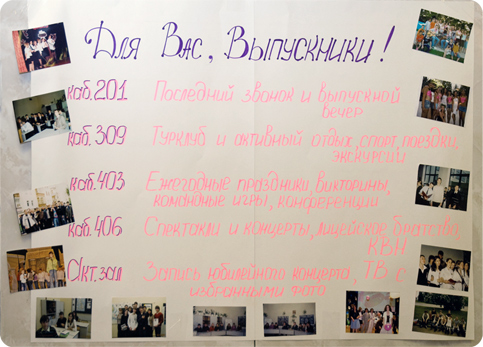 Для Вас, Выпускники!
каб. 201 Последний звонок и выпускной
вечер
каб. 309 Турклуб и активный отдых, спорт, поездки,
экскурсии
каб. 403 Ежегодные праздники, викторины,
командные игры, конференции
каб. 406 Спектакли и концерты, лицейское братство,
КВН
Акт. зал Запись юбилейного концерта, ТВ с
избранными фото